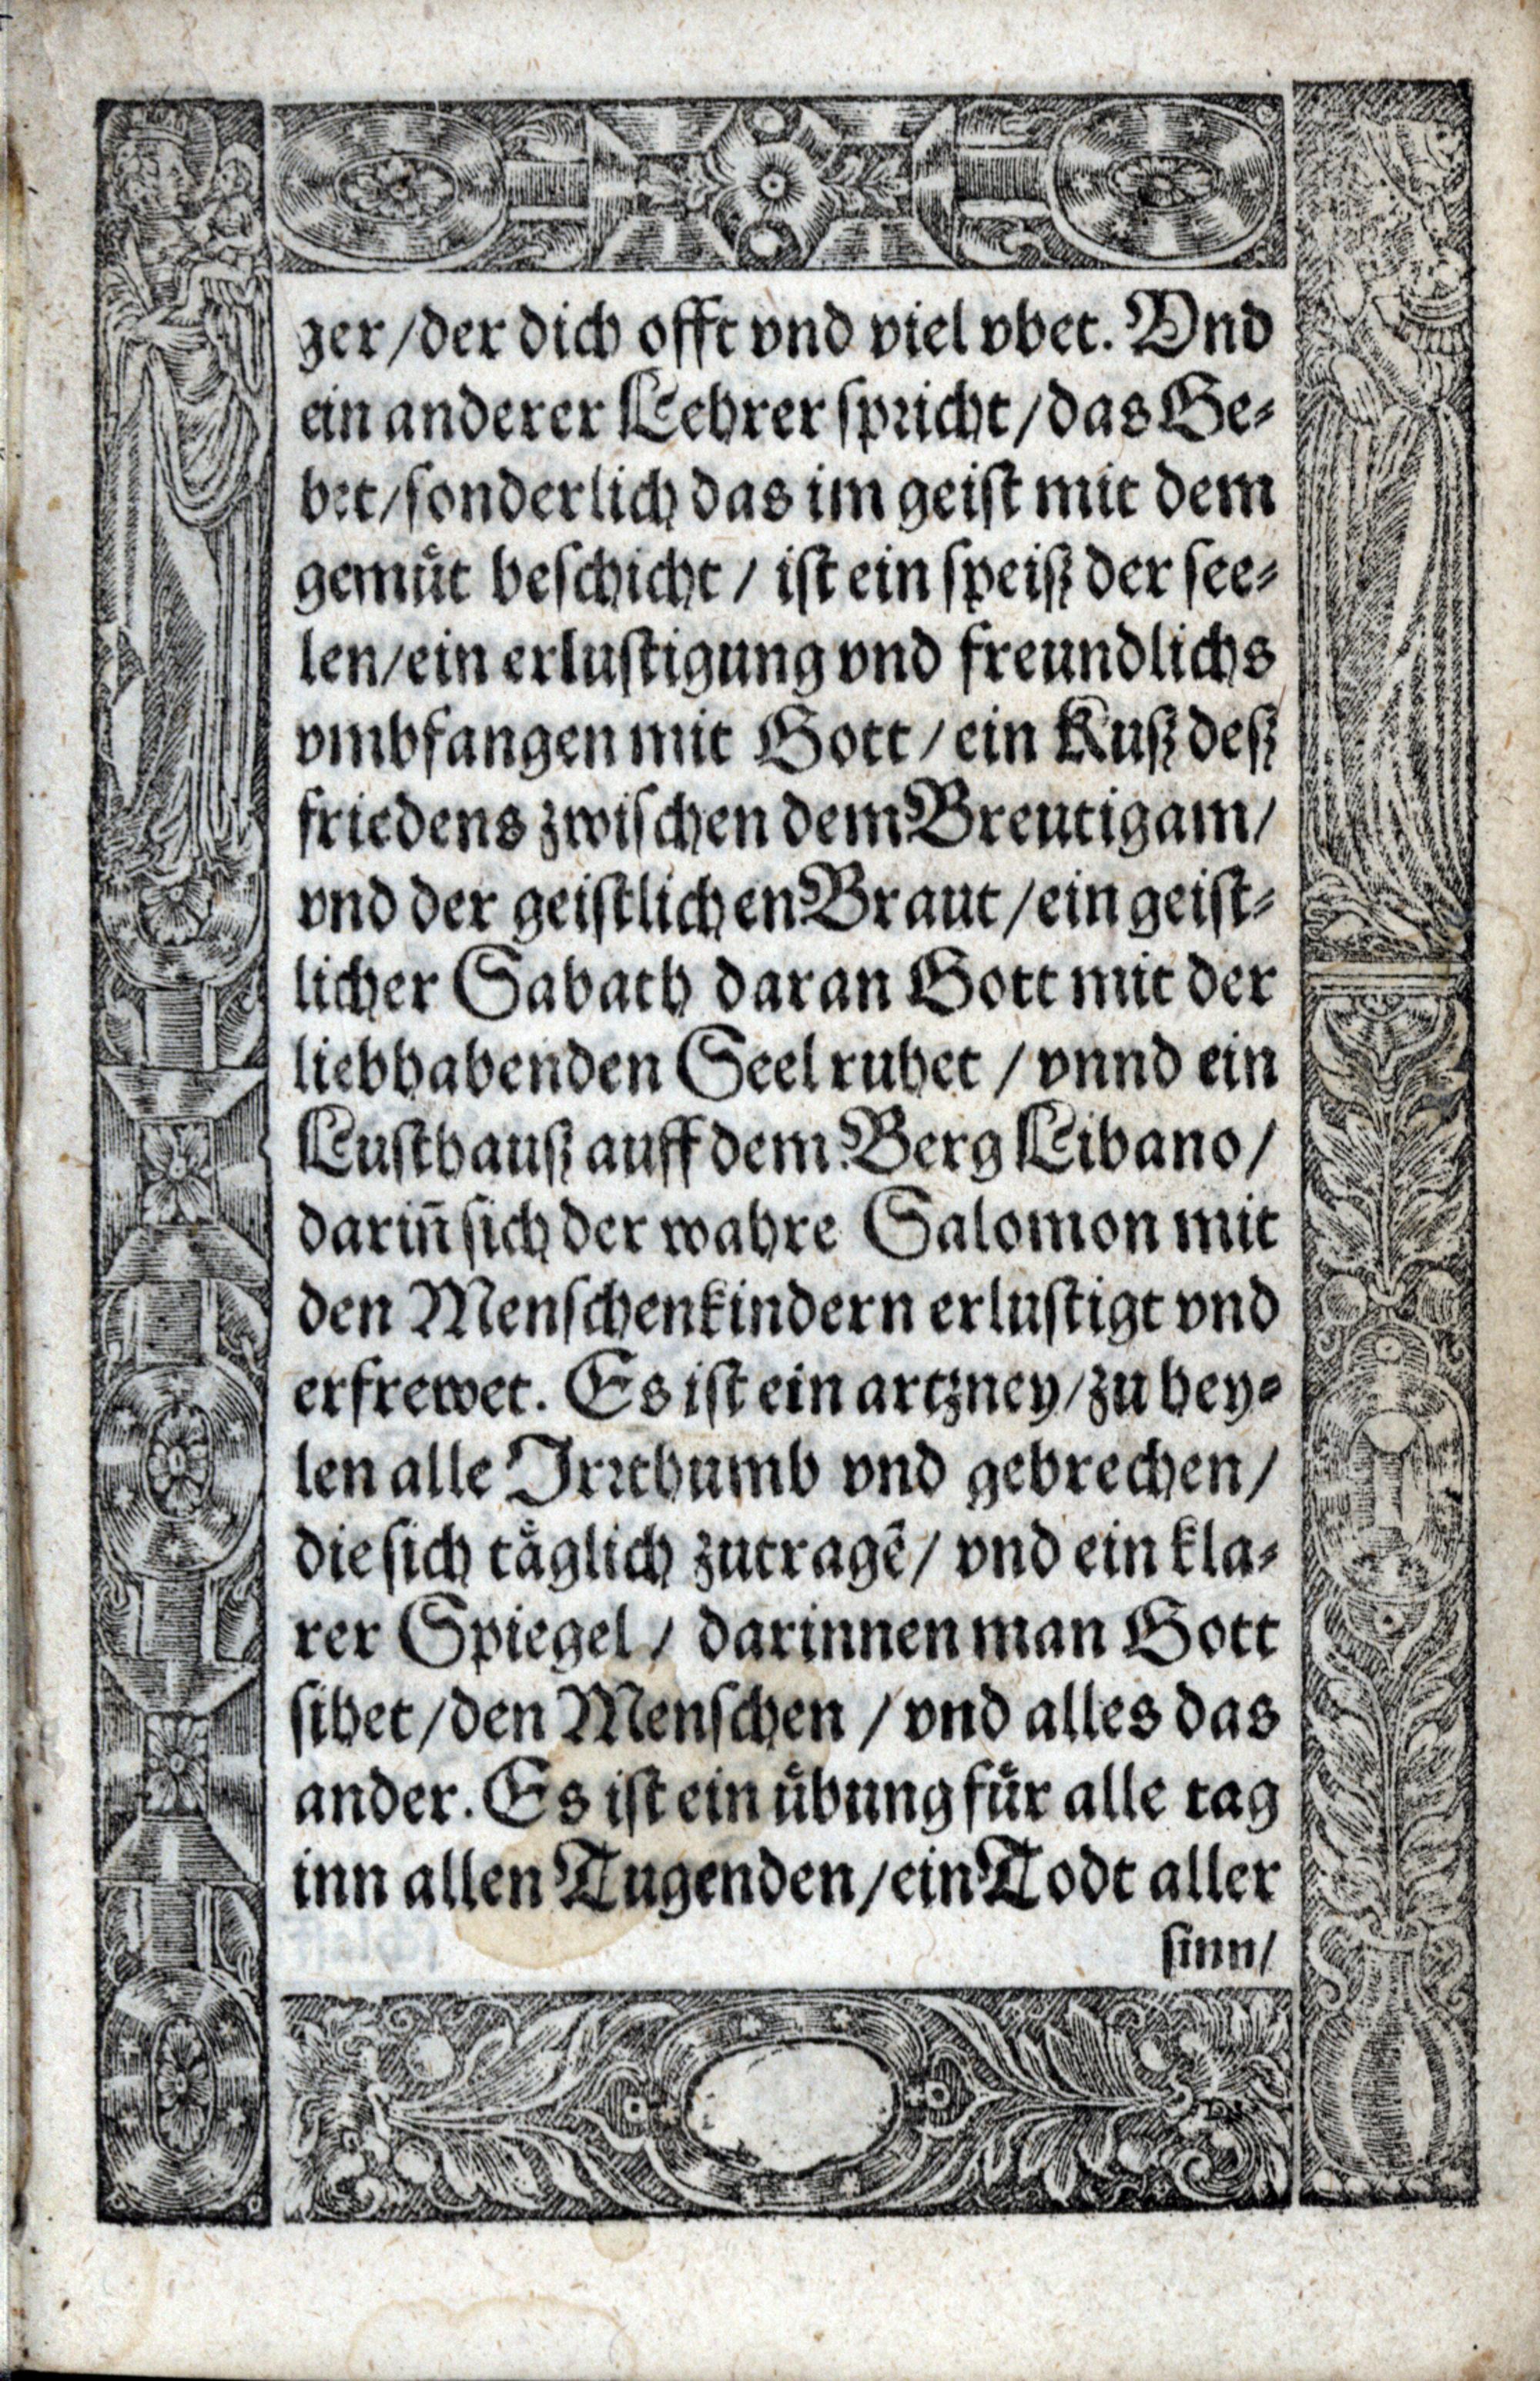 zer / der dich offt vnd viel vbet. Vnd
ein anderer Lehrer spricht / das Ge⸗
bet / sonderlich das im geist mit dem
gemuͤt beschicht / ist ein speiß der see⸗
len / ein erlustigung vnd freundlichs
vmbfangen mit Gott / ein Kuß deß
friedens zwischen dem Breutigam /
vnd der geistlichen Braut / ein geist⸗
licher Sabath daran Gott mit der
liebhabenden Seel ruhet / vnnd ein
Lusthauß auff dem Berg Libano /
dariñ sich der wahre Salomon mit
den Menschenkindern erlustigt vnd
erfrewet. Es ist ein artzney / zu hey⸗
len alle Irrthumb vnd gebrechen /
die sich taͤglich zutragē / vnd ein kla⸗
rer Spiegel / darinnen man Gott
sihet / den Menschen / vnd alles das
ander. Es ist ein uͤbung fuͤr alle tag
inn allen Tugenden / ein Todt aller
sinn /